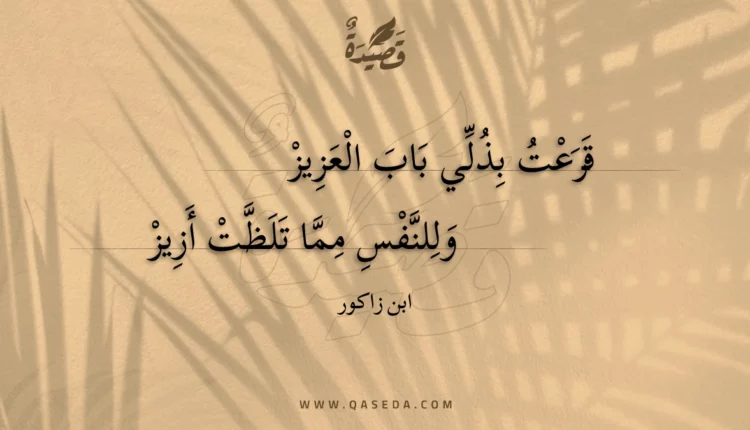 قَصِيْدَةٌ
قَرَعْتُ بِذُلِّي بَابَ الْعَزِيزْ
وَلِلنَّفْسِ مِمَّا تَلَظَّتْ أَزِيزْ
ابن زاكور
WWW.QASEDA.COM